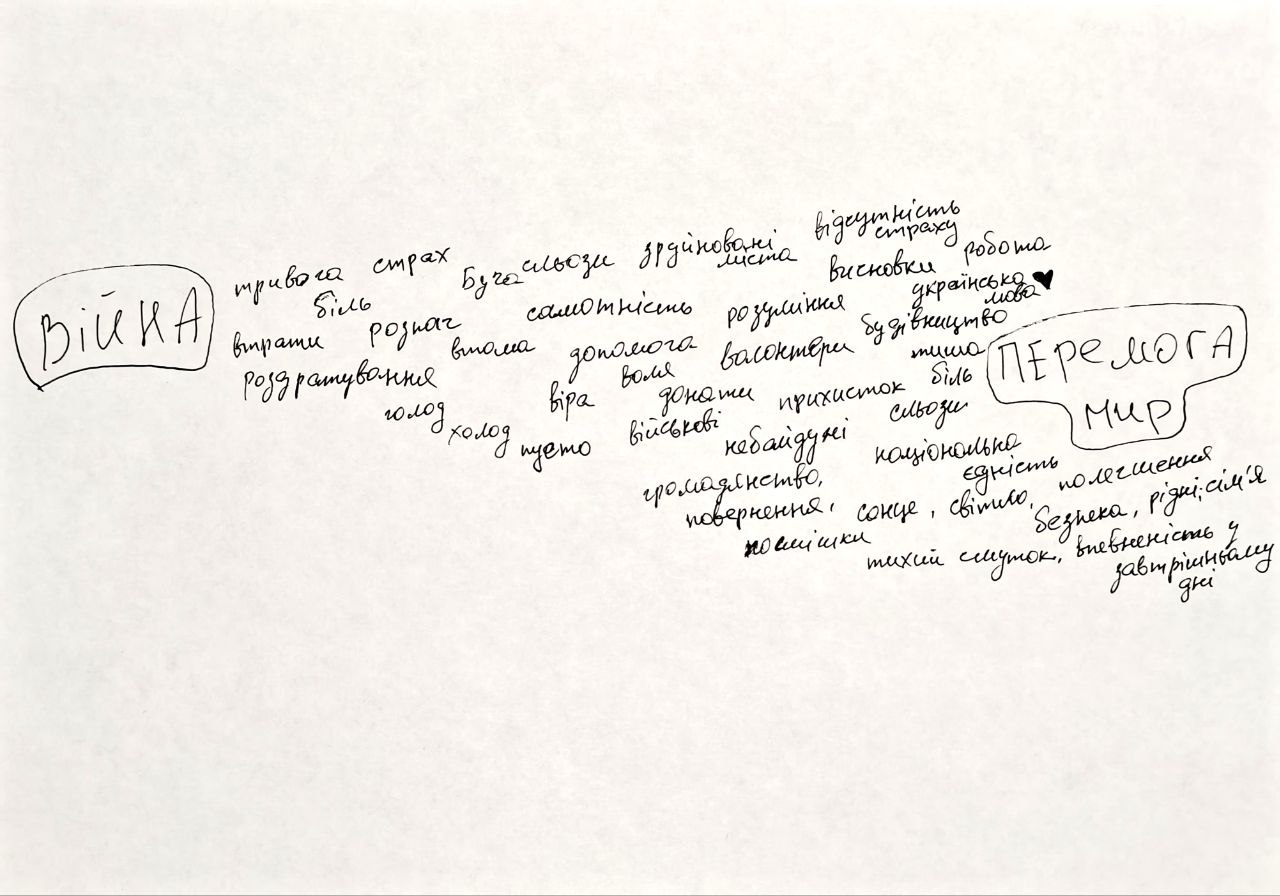 ВІЙНА
тривога страх Буча сльози зруйновані міста відсутність страху
біль самотність розуміння висновки робота
втрати розпач втома допомога волонтери українська мова ♥
роздратування воля будівництво
голод віра донати прихисток тиша
холод пусто військові небайдужі сльози біль
ПЕРЕМОГА
МИР
громадянство, національна єдність
повернення, сонце, світло, полегшення
посмішки безпека, рідні, сім'я
тихий смуток, впевненість у
завтрішньому
дні